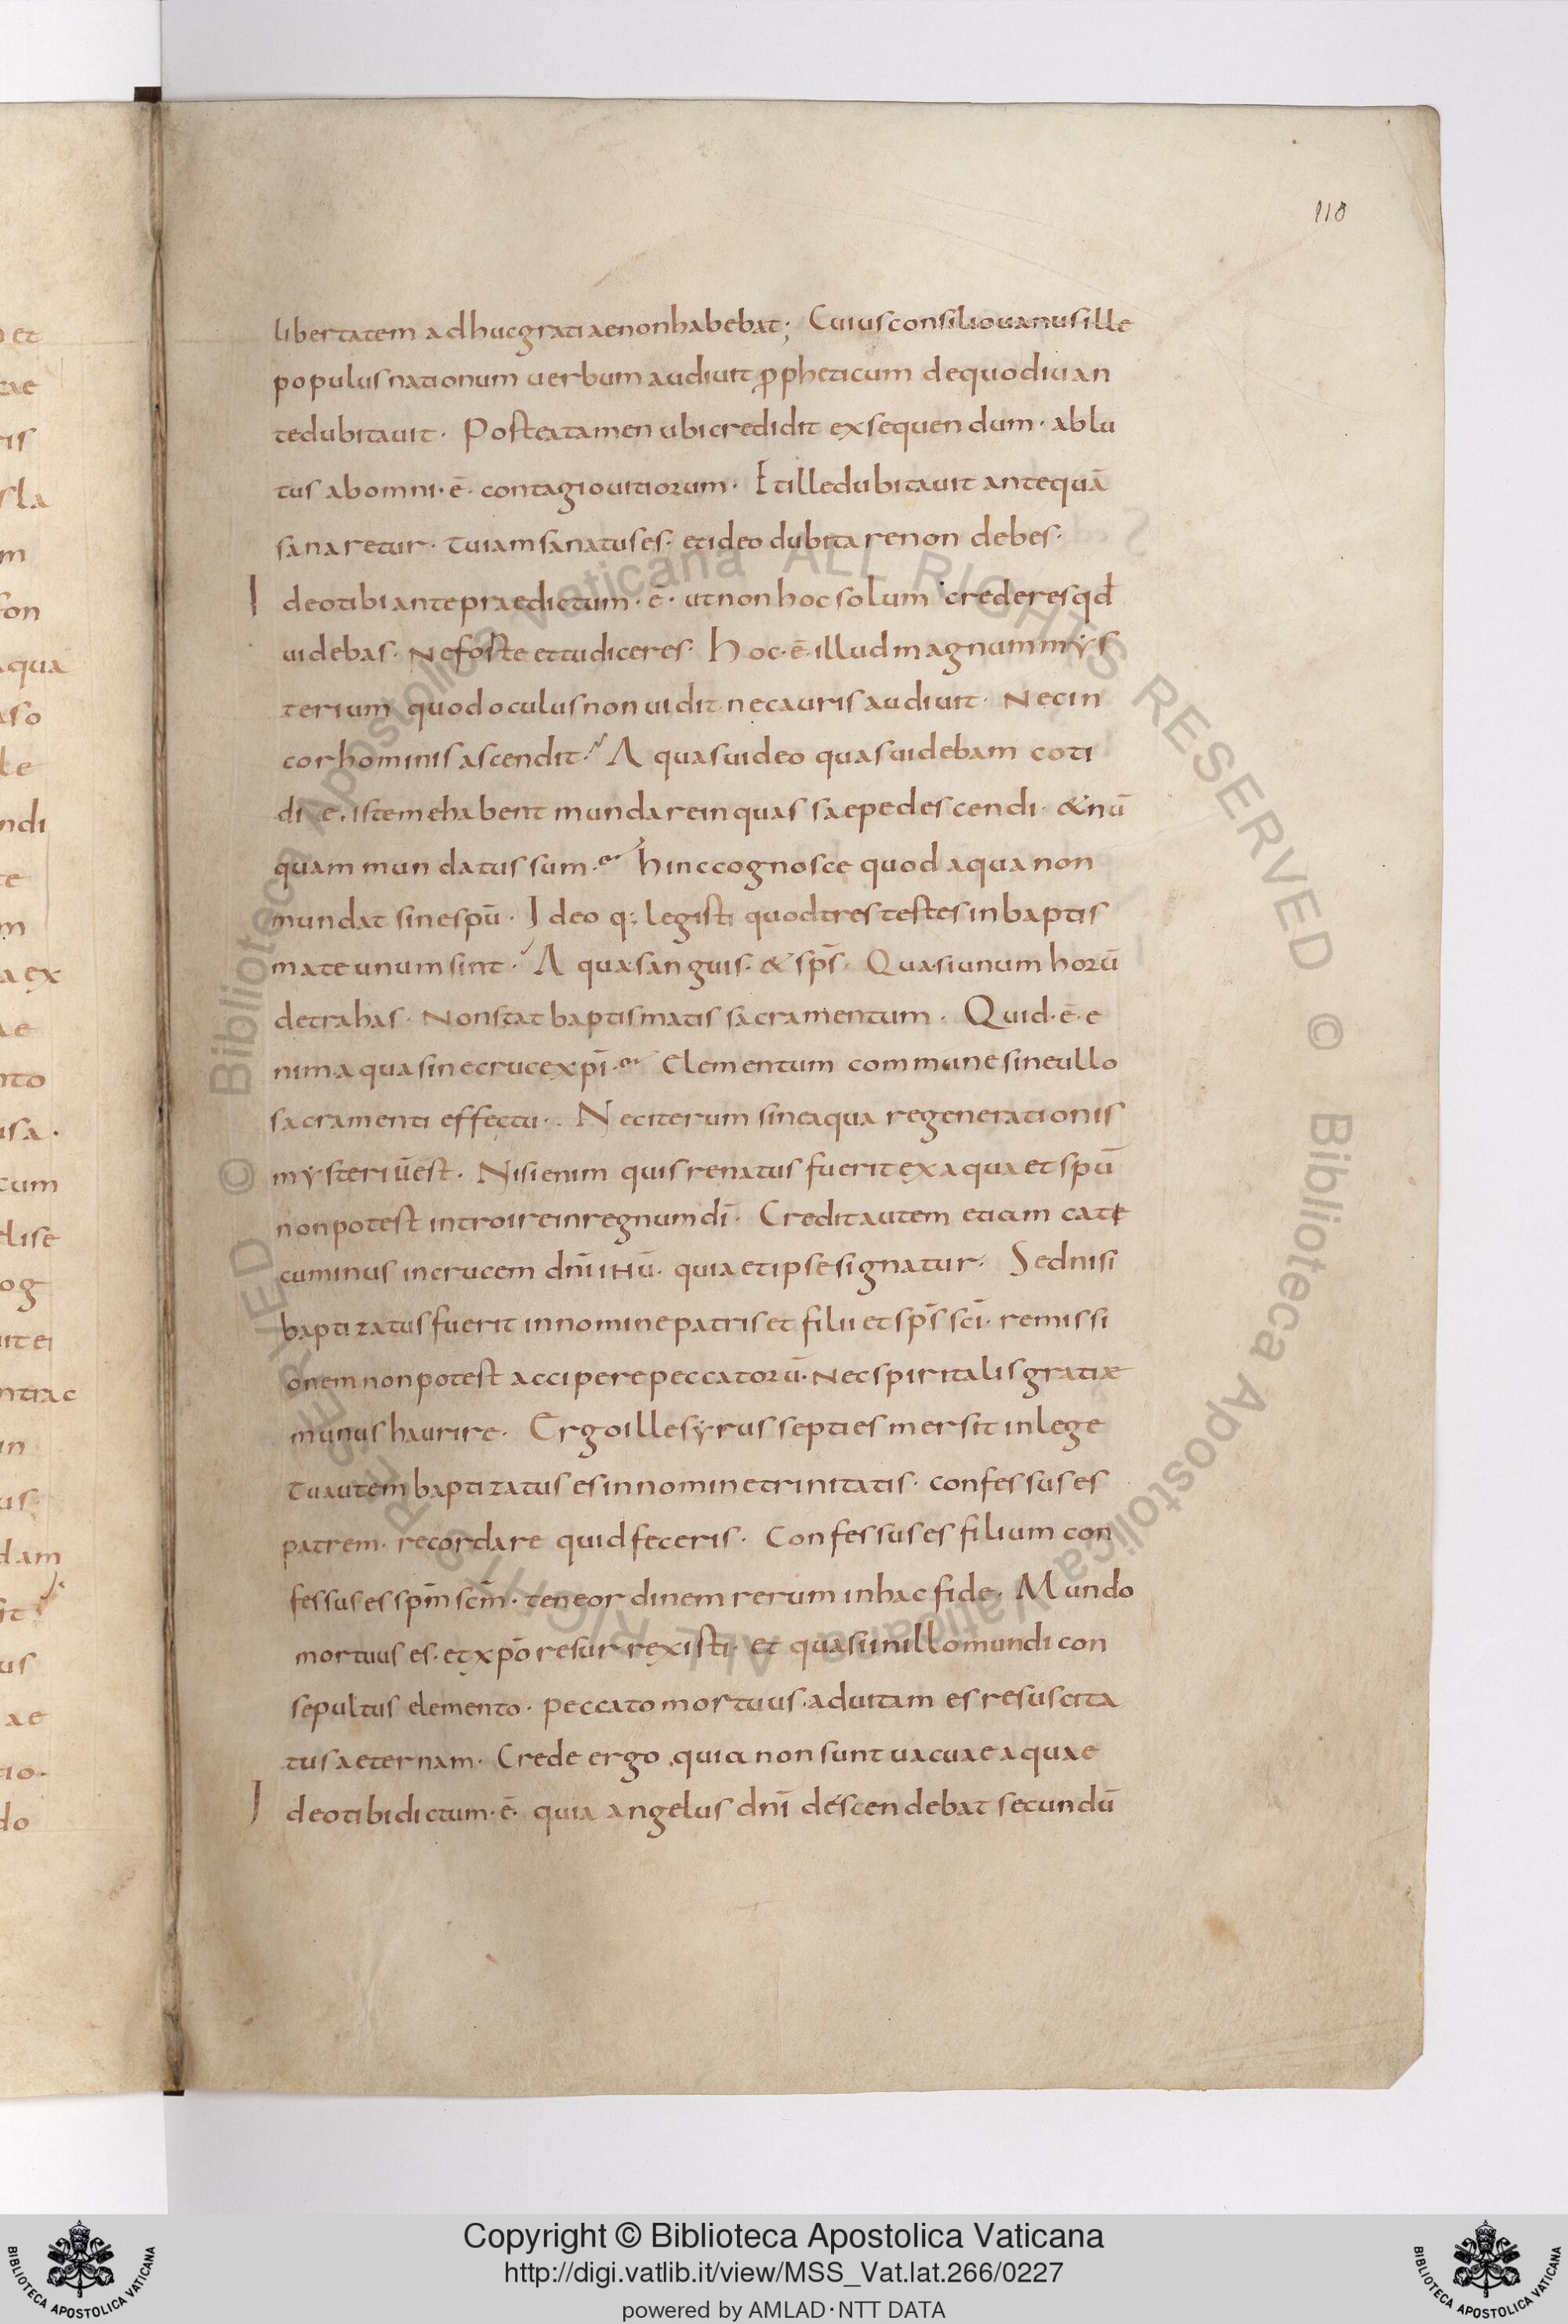 110
libertatem adhuc gratiae non habebat; Cuius consilio uanus ille
populus nationum uerbum audiuit ꝓpheticum de quo diu an
te dubitauit· Postea tamen ubi credidit exsequendum· ablu
tus ab omni· ē· contagio uitiorum· Et ille dubitauit antequā
sanaretur· tu iam sanatus es· et ideo dubitare non debes·
Ideo tibi ante praedictum· ē· ut non hoc solum crederes qđ
uidebas· Ne foste et tu diceres· Hoc· ē· illud magnum mẏs
terium quod oculus non uidit nec auris audiuit· Nec in
cor hominis ascendit· Aquas uideo quas uidebam coti
die· iste me habent mundare in quas saepe descendi· & nū
quam mundatus sum· hinc cognosce quod aqua non
mundat sine spū· Ideoq; legisti quod tres testes in baptis
mate unum sint· Aqua sanguis· & sp̄s· Qua si unum horū
detrahas· Non stat baptismatis sacramentum· Quid· ē· e
nim aqua sine cruce xp̄i· Elementum commune sine ullo
sacramenti effectu· Nec iterum sine aqua regenerationis
mẏsteriū est· Nisi enim quis renatus fuerit ex aqua et spū
non potest introire in regnum dī· Credit autem etiam cate
cuminus in crucem dn̄i iħū· quia et ipse signatur· Sed nisi
baptizatus fuerit in nomine patris et filii et sp̄s sc̄i· remissi
onem non potest accipere peccatorū· Nec spiritalis gratiæ
munus haurire· Ergo ille sẏrus septies mersit in lege
tu autem baptizatus es in nomine trinitatis· confessus es
patrem· recordare quid feceris· Confessus es filium con
fessus es sp̄m sc̄m· tene ordinem rerum in hac fide· Mundo
mortuus es· et xp̄o resurrexisti· et quasi in illo mundi con
sepultus elemento· peccato mortuus· ad uitam es resuscita
tus aeternam· Crede ergo quia non sunt uacuae aquae
Ideo tibi dictum· ē· quia angelus dn̄i descendebat secundū
Copyright © Biblioteca Apostolica Vaticana
http://digi.vatlib.it/view/MSS_Vat.lat.266/0227
powered by AMLAD·NTT DATA